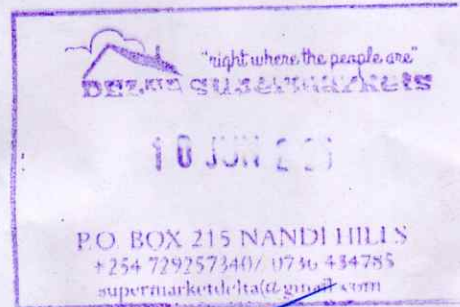 "right where the people are"
SUPERMARKETS
10 JUN
P.O. BOX 215 NANDI HILLS
+254 729257340/ 0736 434785
supermarketdelta@gmail.com